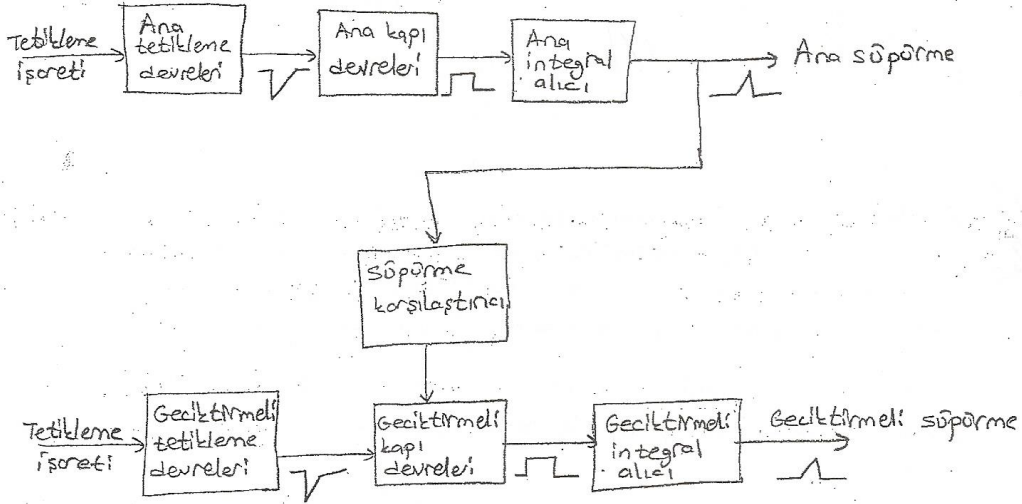 Tetikleme
işareti
Ana
tetikleme
devreleri
Ana kapı
devreleri
Ana
integral
alıcı
Ana süpürme
süpürme
karşılaştırıcı
Tetikleme
işareti
Geciktirmeli
tetikleme
devreleri
Geciktirmeli
kapı
devreleri
Geciktirmeli
integral
alıcı
Geciktirmeli süpürme